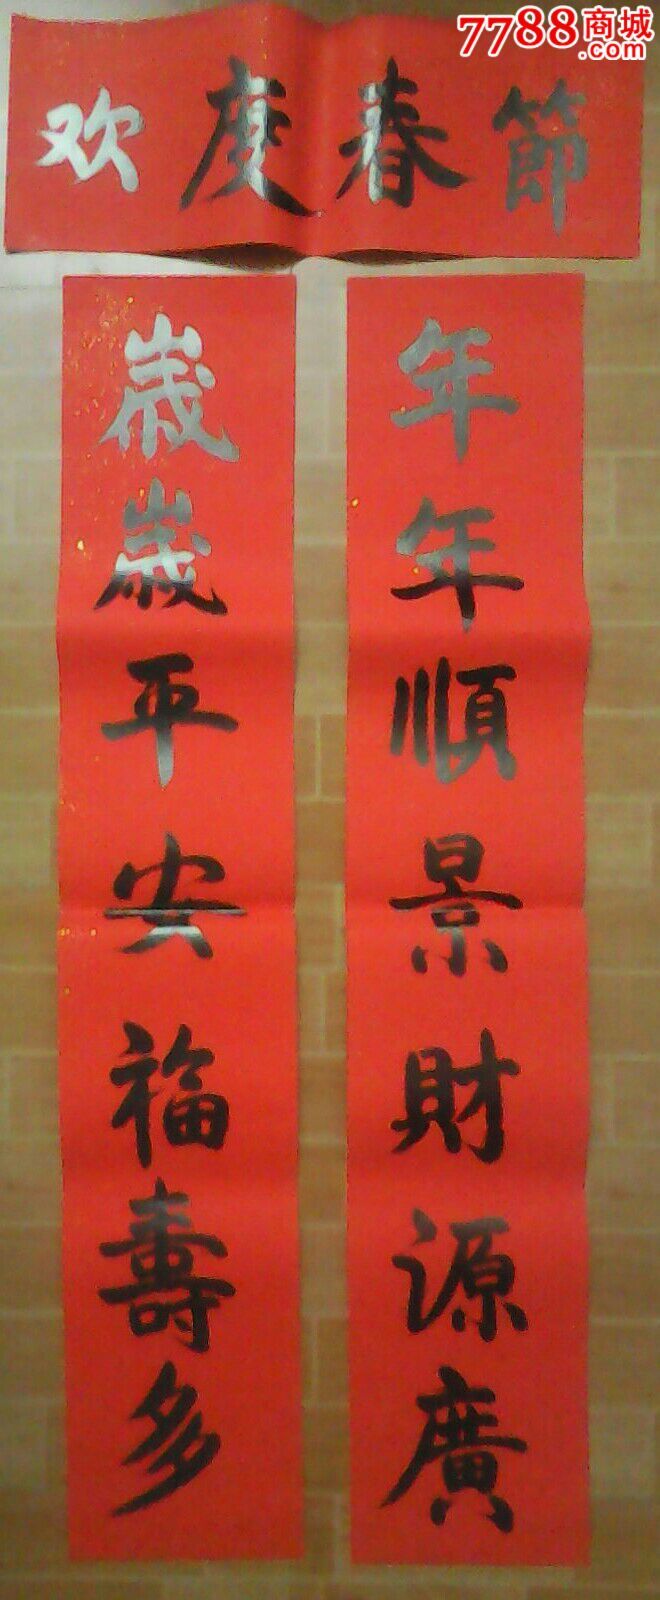 7788商城
.com
欢度春節
年年順景財源廣
歲歲平安福壽多